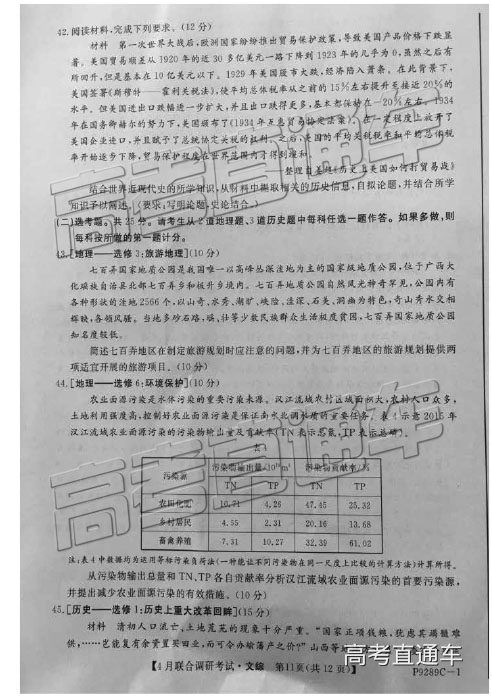 42.阅读材料,完成下列要求。(12分)
材料 第一次世界大战后,欧洲国家纷纷推出贸易保护政策,导致美国产品价格下跌显
著。美国贸易顺差从1920年的近30多亿美元一路下降到1923年的几乎为0,虽然之后有
所回升,但是基本在10亿美元以下。1929年美国股市大跌,经济陷入萧条。在此背景下,
美国签署《斯穆特——霍利关税法》,使平均总体税率从之前的15%左右提升至接近20%的
水平。但美国进出口跌幅进一步扩大,并且出口跌得更多,基本都保持在-20%左右。1934
年在国务卿赫尔的努力下,美国颁布了《1934年互惠贸易协定法案》,在一定程度上放开了
美国企业进口,并且赋予了总统协定关税的权利。之后,美国的平均关税税率和平均总体税
率开始逐步下降,贸易保护程度在世界范围内才得到缓和。
——整理自姜超《历史上美国如何打贸易战》
结合世界近现代史的所学知识,从材料中提取相关的历史信息,自拟论题,并结合所学
知识予以阐述。(要求:写明论题,史论结合。)
(二)选考题。共25分。请考生从2道地理题、3道历史题中每科任选一题作答。如果多做,则
每科按所做的第一题计分。
43.[地理——选修3:旅游地理](10分)
七百弄国家地质公园是我国唯一以高峰丛深洼地为主的国家级地质公园,位于广西大
化瑶族自治县北部七百弄乡和板升乡境内。七百弄地质公园自然风光神奇罕见,公园内有
各种形状的洼地2566个,以山奇、水秀、湖旷、峡险、洼深、石美、洞幽为特色,奇山秀水交相
辉映,各领风骚。当地多砂石路,瑶、壮等少数民族群众生活极度贫困,七百弄国家地质公园
知名度较低。
简述七百弄地区在制定旅游规划时应注意的问题,并为七百弄地区的旅游规划提供两
项适宜开展的旅游项目。(10分)
44.[地理——选修6:环境保护](10分)
农业面源污染是水体污染的主要污染来源。汉江流域农村区域面积大,农村人口众多,
土地利用强度高,控制好农业面源污染是保证南水北调水质的重要任务。表4示意2015年
汉江流域农业面源污染的污染物输出量及贡献率(TN表示总氮,TP表示总磷)。
表4
污染源 污染物输出量/10¹⁰m³ 污染物贡献率/%
TN TP TN TP
农田化肥 10.71 4.26 47.45 25.32
乡村居民 4.55 2.31 20.16 13.68
畜禽养殖 7.31 10.27 32.39 61.02
注:表4中数据均为运用等标污染负荷法(一种能让不同污染物在同一尺度上比较的计算方法)计算所得。
从污染物输出总量和TN、TP各自贡献率分析汉江流域农业面源污染的首要污染源,
并提出减少农业面源污染的有效措施。(10分)
45.[历史——选修1:历史上重大改革回眸](15分)
材料 清初人口流亡,土地荒芜的现象十分严重。“国家正项钱粮,犹虑其蹒跚难
供,……岂能复有余资置买田业,而可令办输荡产之价?”山西等地
【4月联合调研考试·文综 第11页(共12页)】
P9289C-1
高考直通车
高考直通车
高考直通车
高考直通车